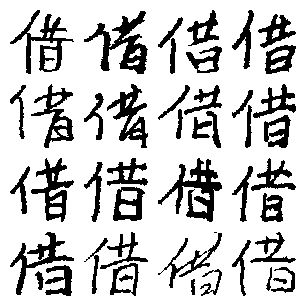 借借借借
借借借借
借借借借
借借借借